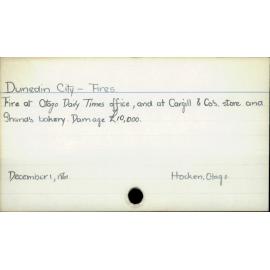 Dunedin City - Fires
Fire at Otago Daily Times office, and at Cargill & Co's. store and
bakery. Damage £10,000.
December 1, 1861 Hocken, Otago